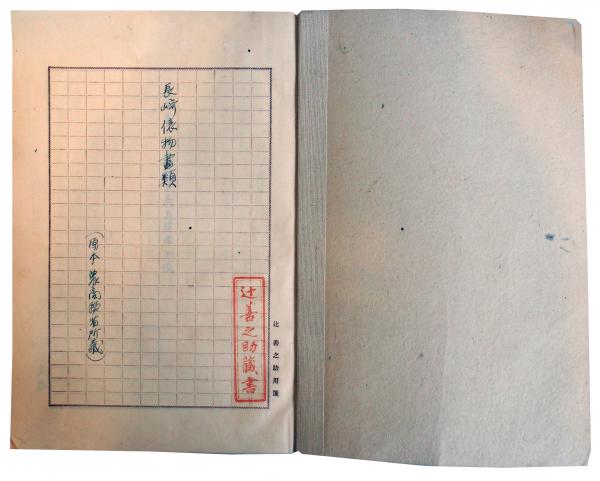 長崎俵物書類
(原本農商務省所蔵)
辻善之助蔵書
辻善之助用箋